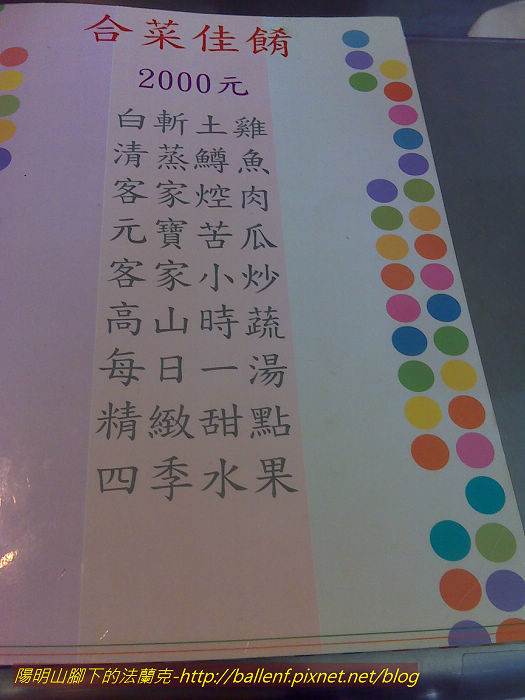 合菜佳餚
2000元
白斬土雞
清蒸鱒魚
客家焢肉
元寶苦瓜
客家小炒
高山時蔬
每日一湯
精緻甜點
四季水果
陽明山腳下的法蘭克-http://ballenf.pixnet.net/blog